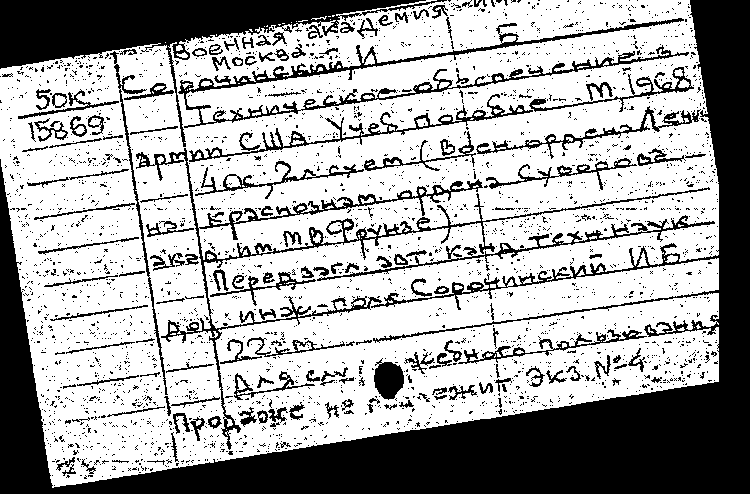 Военная академия им.
Москва
50к Сорочинский, И Б
15869 Техническое обеспечение в
армии США Учеб. пособие М, 1968
40с, 2л схем (Воен. ордена Лени-
на. краснознам. ордена Суворова
акад. им. М.В Фрунзе)
Перед загл. авт: канд. техн. наук
доц. инж-полк Сорочинский И Б
22см
Для служебного пользования
Продаже не подлежит Экз. №4